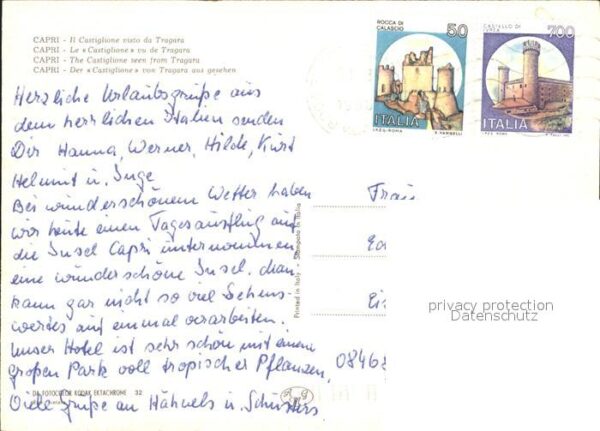 CAPRI - Il Castiglione visto da Tragara
CAPRI - Le «Castiglione» vu de Tragara
CAPRI - The Castiglione seen from Tragara
CAPRI - Der «Castiglione» von Tragara aus gesehen
ROCCA DI
CALASCIO
50
ITALIA
I.P.Z.S.-ROMA
E. VANGELLI
CASTELLO DI
IVREA
700
ITALIA
I.P.Z.S. ROMA
Herzliche Urlaubsgrüße aus
dem herrlichen Italien senden
Dir Hanna, Werner, Hilde, Kurt
Helmut u. Inge
Bei wunderschönem Wetter haben
wir heute einen Tagesausflug auf
die Insel Capri unternommen
eine wunderschöne Insel. Man
kann gar nicht so viel Sehens-
wertes auf einmal verarbeiten.
Unser Hotel ist sehr schön mit einem
großen Park voll tropischer Pflanzen,
Viele Grüße an Hähnels u. Schusters
Printed in Italy - Stampato in Italia
Frau
08468
DA FOTOCOLOR KODAK EKTACHROME 32
privacy protection
Datenschutz